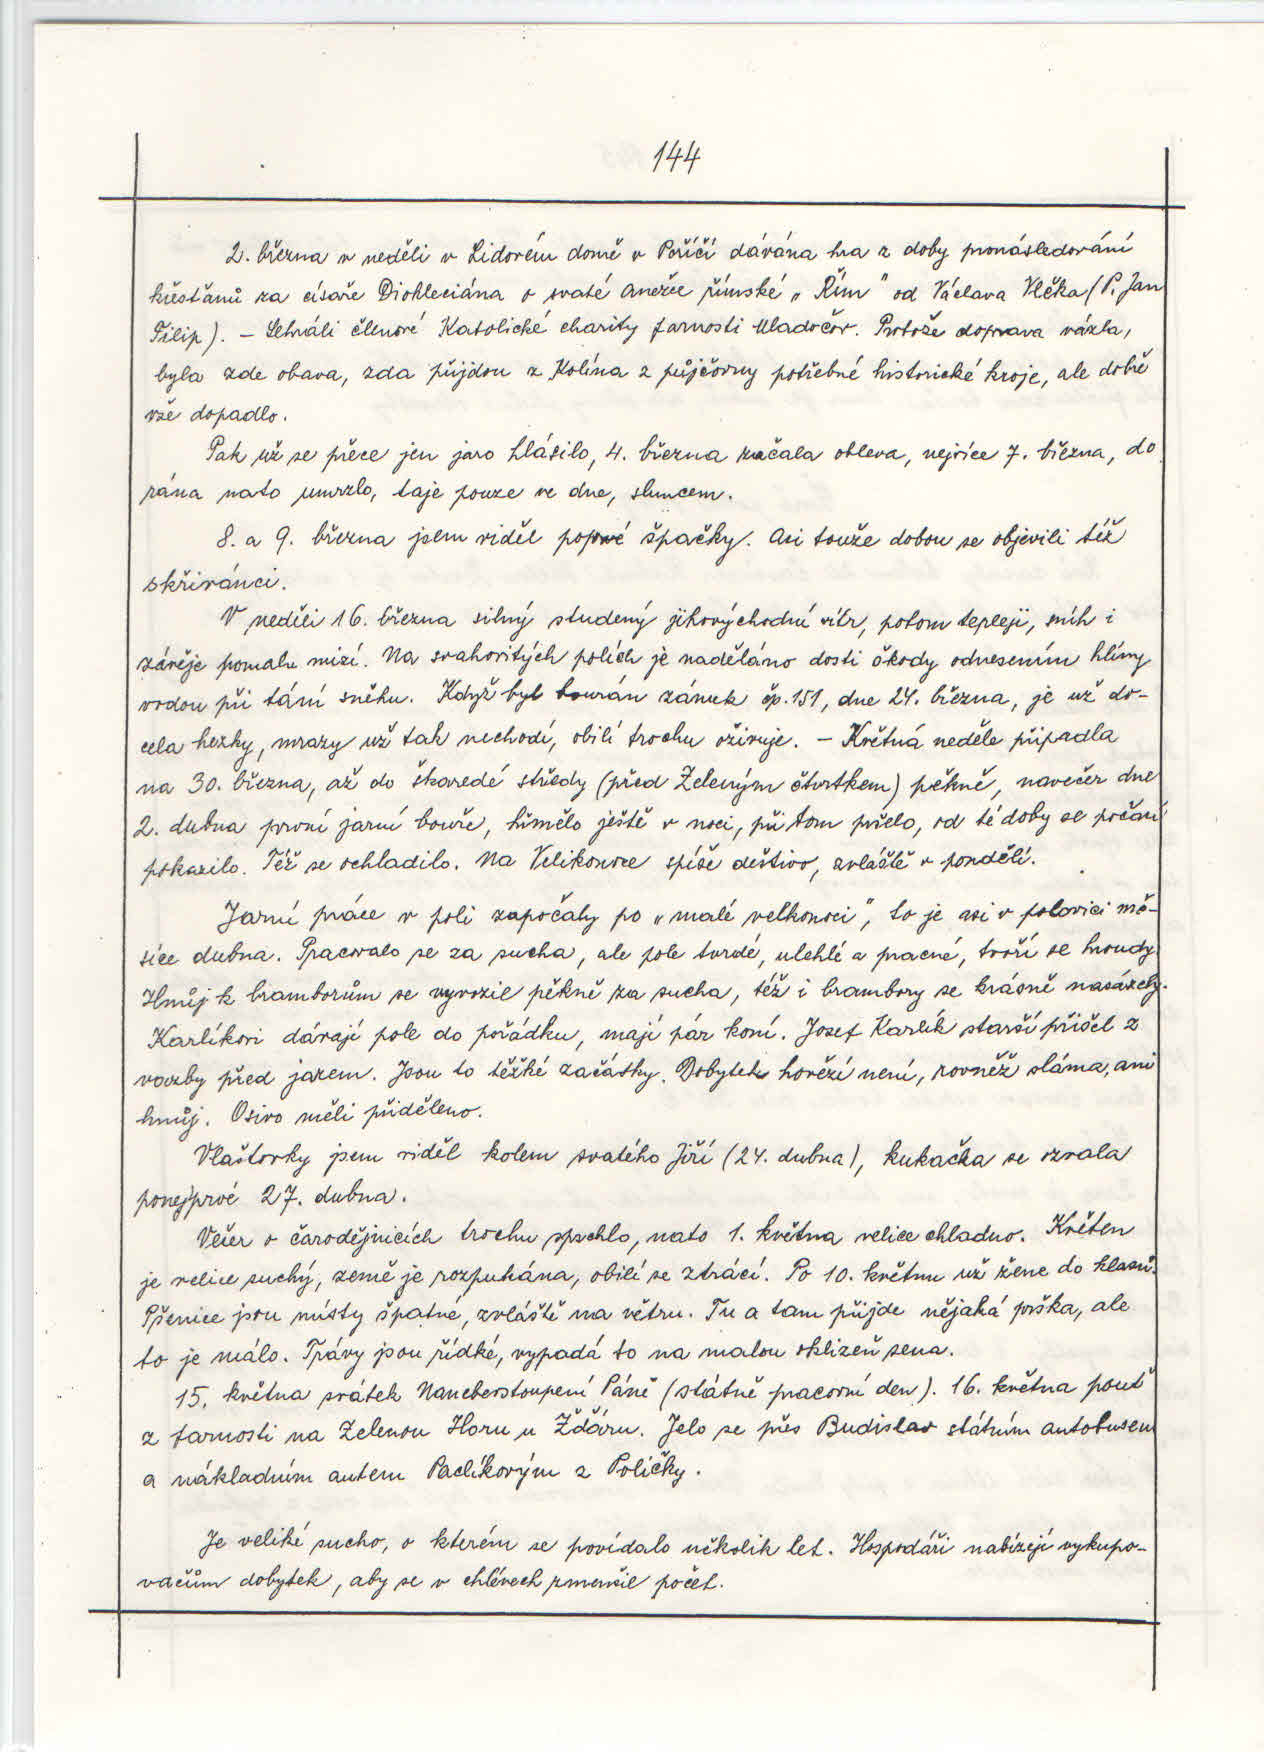 144
2. března v neděli v Lidovém domě v Poříčí dávána hra z doby pronásledování
křesťanů za císaře Diokleciána o svaté Anežce římské „Řím" od Václava Vlčka (P. Jan
Filip). – Sehráli členové Katolické charity farnosti Mladočov. Protože doprava vázla,
byla zde obava, zda přijdou z Kolína z půjčovny potřebné historické kroje, ale dobře
vše dopadlo.
Pak už se přece jen jaro hlásilo, 4. března začala obleva, nejvíce 7. března, do
rána nato umrzlo, taje pouze ve dne, sluncem.
8. a 9. března jsem viděl poprvé špačky. Asi touže dobou se objevili též
skřivánci.
V neděli 16. března silný studený jihovýchodní vítr, potom tepleji, sníh i
závěje pomalu mizí. Na svahovitých polích je naděláno dosti škody odnesením hlíny
vodou při tání sněhu. Když byl bourán zámek čp. 151, dne 24. března, je už do-
cela hezky, mrazy už tak nechodí, obilí trochu oživuje. – Květná neděle připadla
na 30. března, až do škaredé středy (před Zeleným čtvrtkem) pěkně, navečer dne
2. dubna první jarní bouře, hřmělo ještě v noci, při tom pršelo, od té doby se počasí
pokazilo. Též se ochladilo. Na Velikonoce spíše deštivo, zvláště v pondělí.
Jarní práce v poli započaly po „malé velkonoci", to je asi v polovici mě-
síce dubna. Pracovalo se za sucha, ale pole tvrdé, ulehlé a pracné, tvoří se hroudy.
Hnůj k bramborům se vyvozil pěkně za sucha, též i brambory se krásně nasázely.
Karlíkovi dávají pole do pořádku, mají pár koní. Josef Karlík starší přišel z
vazby před jarem. Jsou to těžké začátky. Dobytek hovězí není, rovněž sláma, ani
hnůj. Osivo měli přiděleno.
Vlaštovky jsem viděl kolem svatého Jiří (24. dubna), kukačka se ozvala
ponejprvé 27. dubna.
Večer o čarodějnicích trochu sprchlo, nato 1. května velice chladno. Květen
je velice suchý, země je rozpukána, obilí se ztrácí. Po 10. květnu už žene do klasů.
Pšenice jsou místy špatné, zvláště na větru. Tu a tam přijde nějaká prška, ale
to je málo. Trávy jsou řídké, vypadá to na malou sklizeň sena.
15. května svátek Nanebevstoupení Páně (státně pracovní den). 16. května pouť
z farnosti na Zelenou Horu u Žďáru. Jelo se přes Budislav státním autobusem
a nákladním autem Paclíkovým z Poličky.
Je veliké sucho, o kterém se povídalo několik let. Hospodáři nabízejí vykupo-
vačům dobytek, aby se v chlévech zmenšil počet.